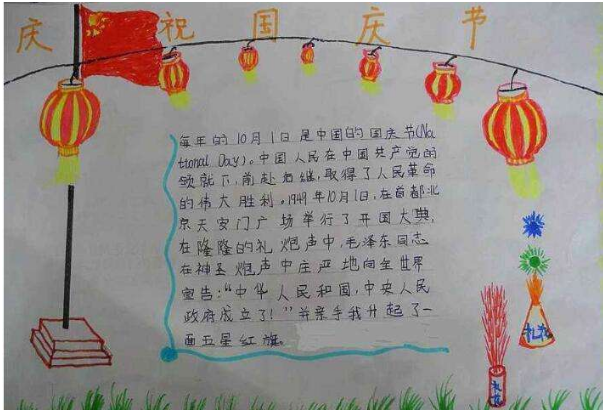 庆祝国庆节
每年的10月1日是中国的国庆节(Na
tional Day)。中国人民在中国共产党的
领就下,前赴后继,取得了人民革命
的伟大胜利。1949年10月1日,在首都北
京天安门广场举行了开国大典,
在隆隆的礼炮声中,毛泽东同志
在神圣炮声中庄严地向全世界
宣告:“中华人民和国,中央人民
政府成立了!”并亲手我升起了一
面五星红旗。
礼花
礼花